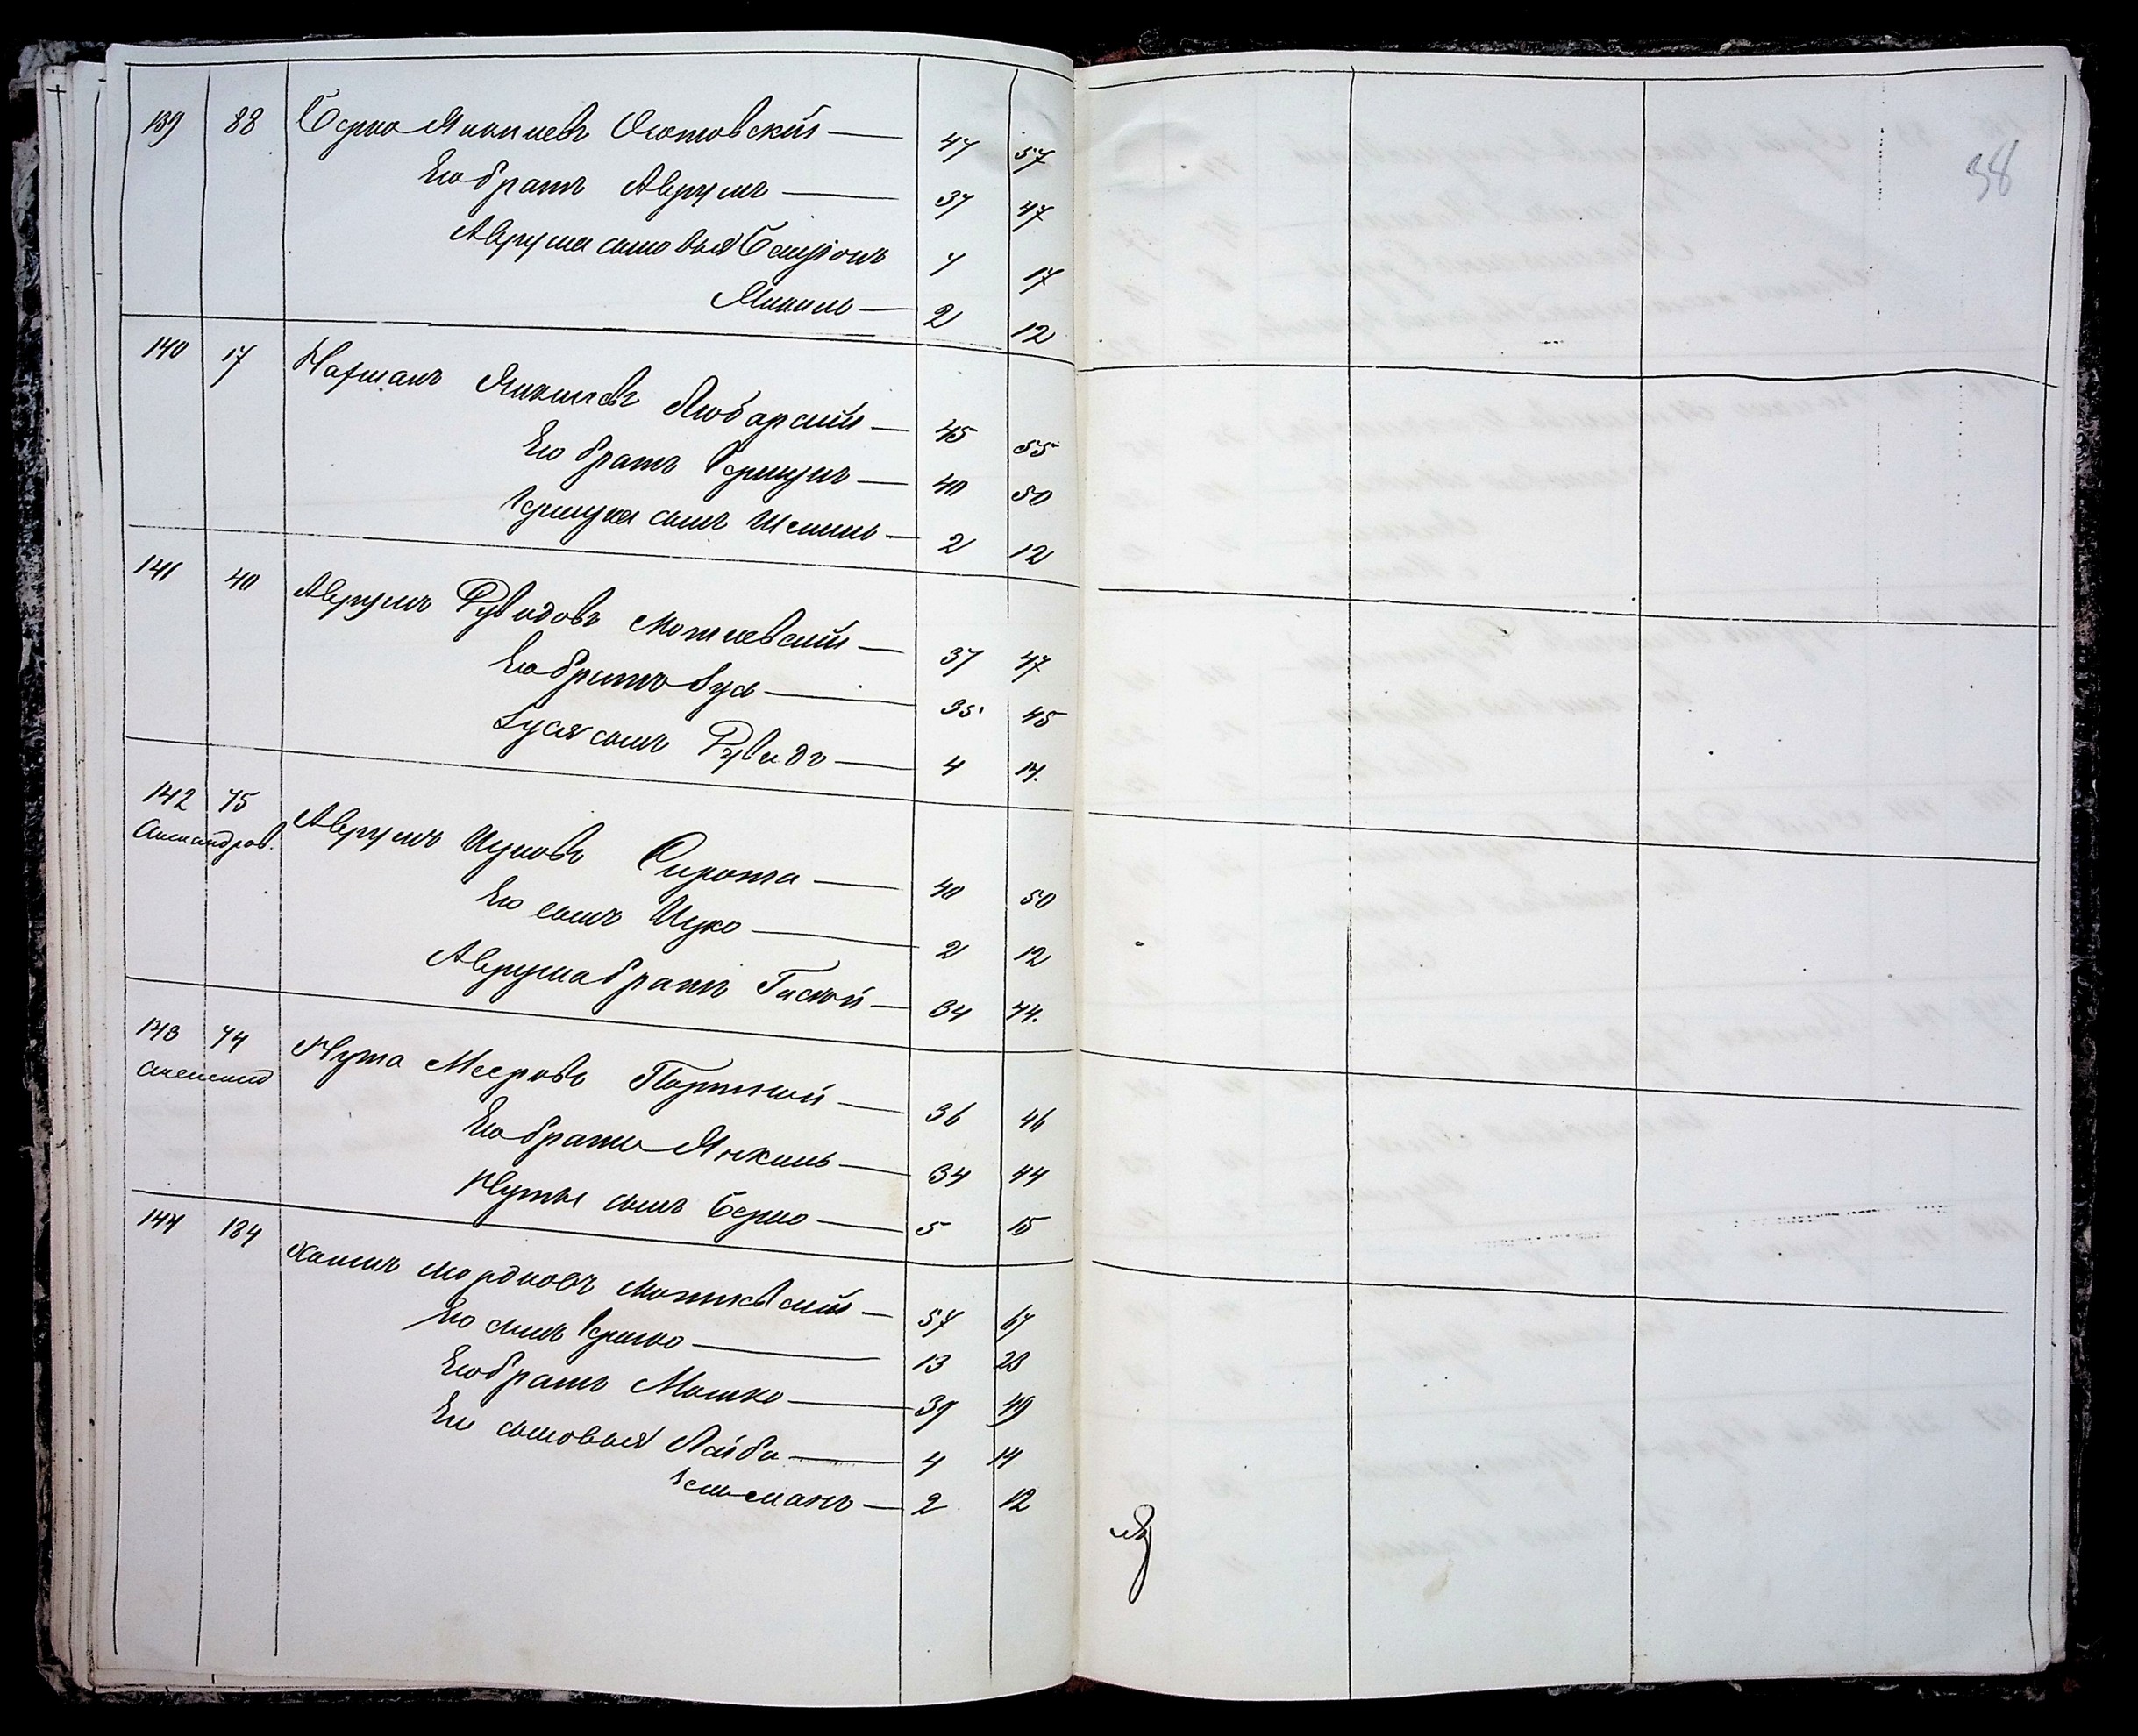 139 88 Берко Янкелевъ Охотовскій — 47 57
Его братъ Аврумъ — 37 47
Аврума сыновья Бенціонъ 7 17
Янкель — 2 12
140 17 Нахманъ Янкилевъ Любарскій — 45 55
Его братъ Гершунъ — 40 50
Гершуна сынъ — 2 12
141 40 Аврумъ Рувидовъ Мотиевскій — 37 47
Его братъ Зусь — 35 45
Зуся сынъ Рувидъ — 4 14.
142 75 Аврумъ Ицковъ Сирота — 40 50
Его сынъ Ицко — 2 12
Аврума братъ — 34 44.
143 74 Нута Мееровъ Портной — 36 46
Его братъ Янкель — 34 44
Нуты сынъ Берко — 5 15
144 184 Хаимъ Мордковъ Мотиевскій — 57 67
Его сынъ Гершко — 13 23
Его братъ Мошко — 39 49
Его сыновья Лейба — 4 14
— 2 12
38